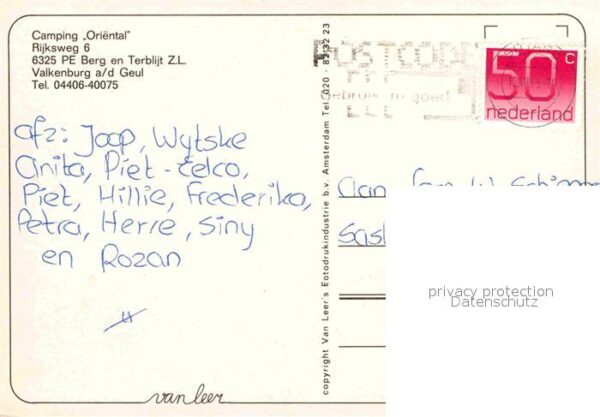 Camping „Oriëntal"
Rijksweg 6
6325 PE Berg en Terblijt Z.L.
Valkenburg a/d Geul
Tel. 04406-40075
afz: Joop, Wytske
Anita, Piet-Eelco,
Piet, Hillie, Frederika,
Petra, Herre, Siny
en Rozan
van leer
copyright Van Leer's Fotodrukindustrie b.v. Amsterdam Tel. 020 -
POSTCODE
gebruik 'm goed
50 c
nederland
Aan fam W.
privacy protection
Datenschutz